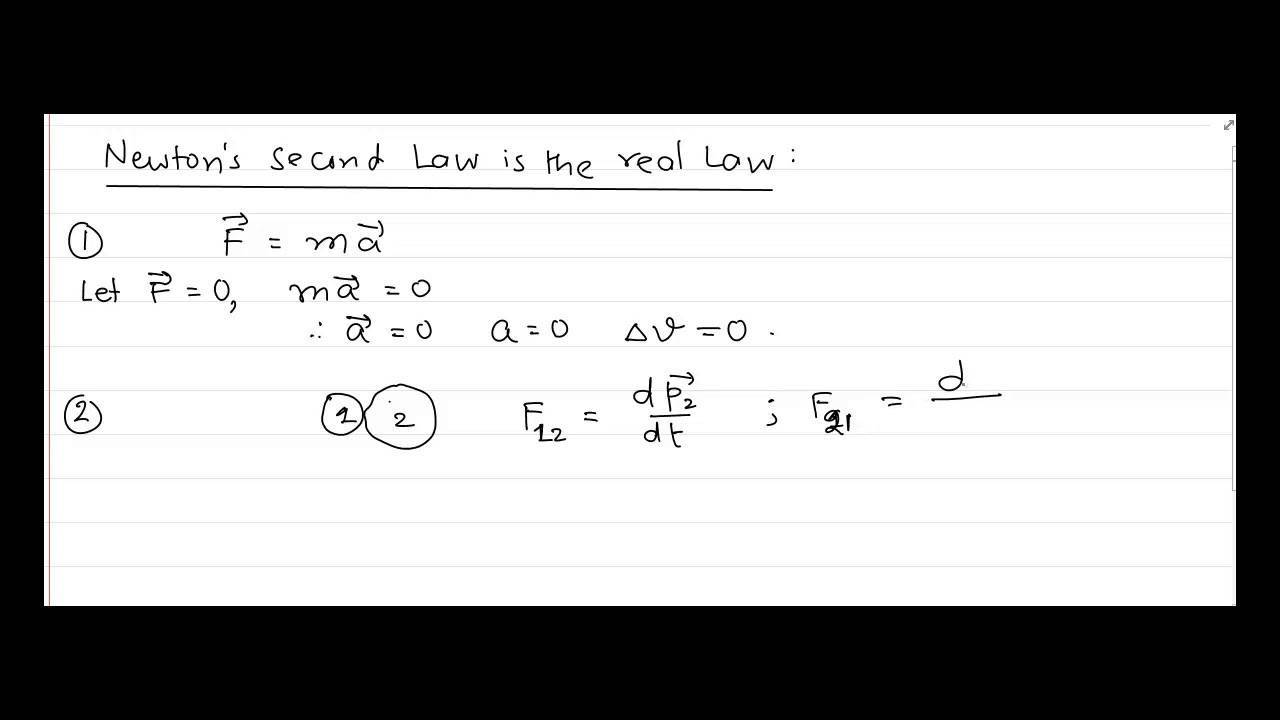 Newton's second Law is the real Law :
① F⃗ = ma⃗
Let F⃗ = 0, ma⃗ = 0
∴ a⃗ = 0 a = 0 Δv = 0 .
② ① ② F₁₂ = dp⃗₂/dt ; F₂₁ = d